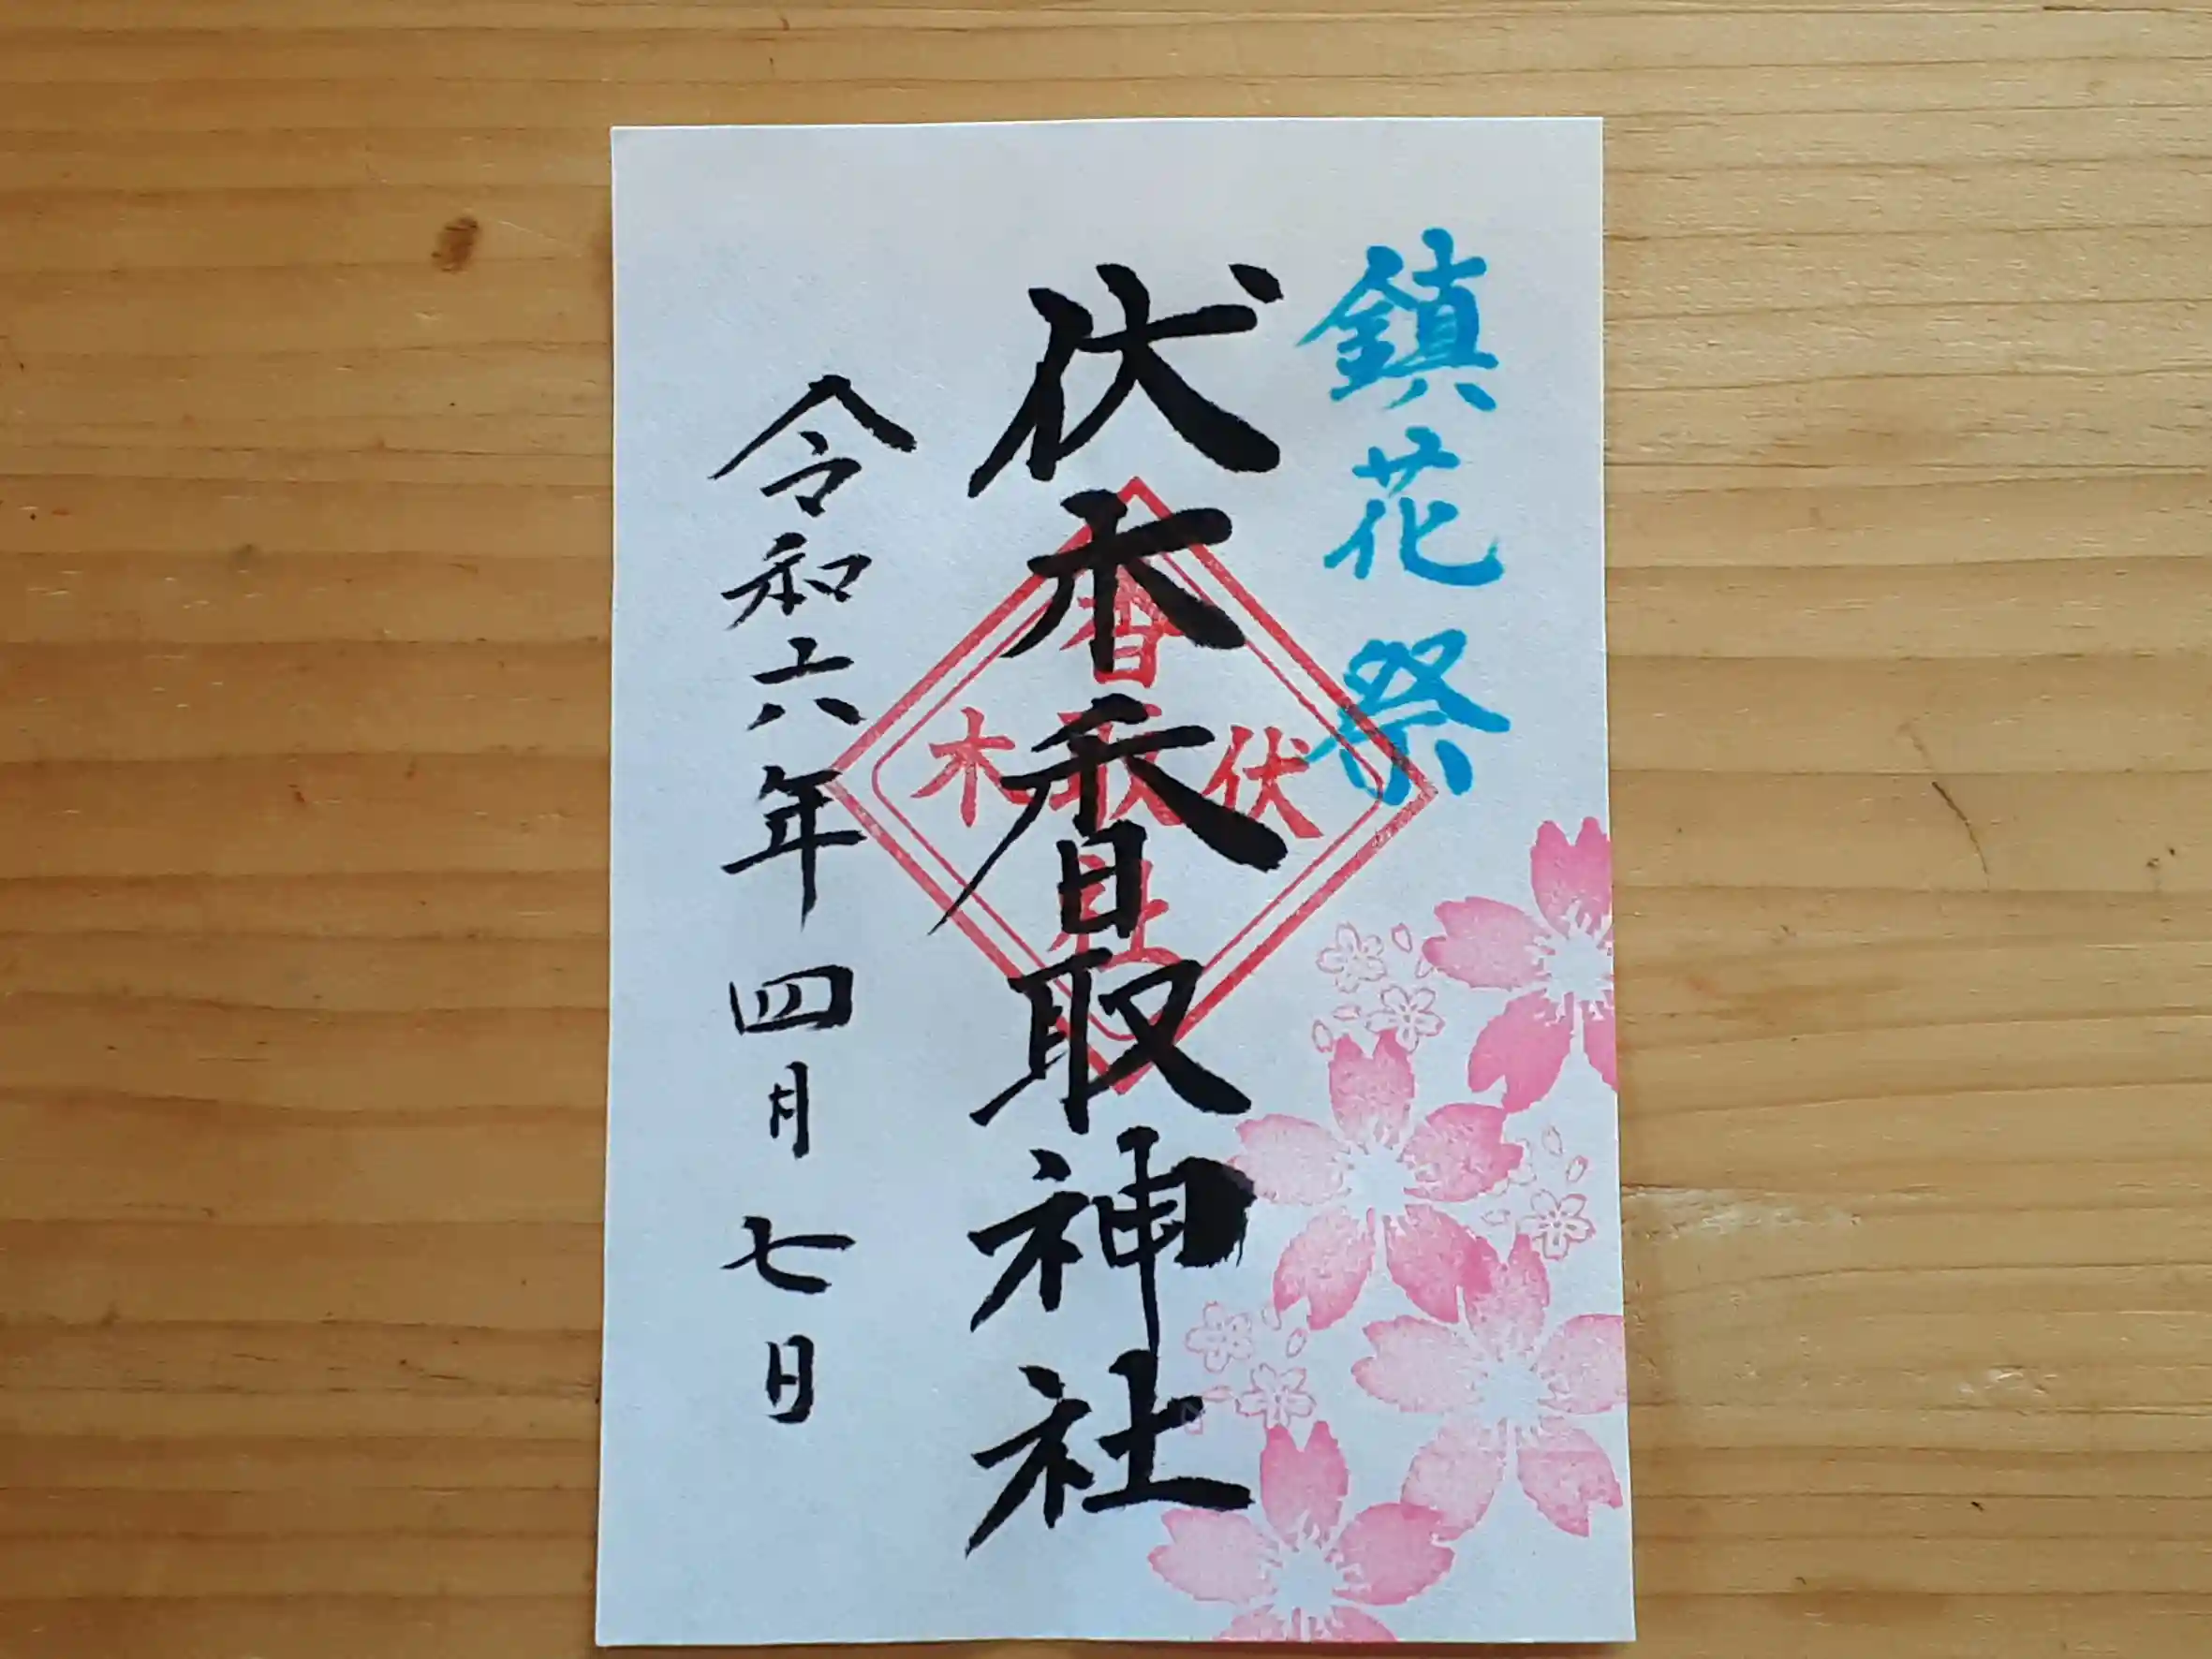 鎮花祭
伏木香取神社
香取社
伏木
令和六年四月七日